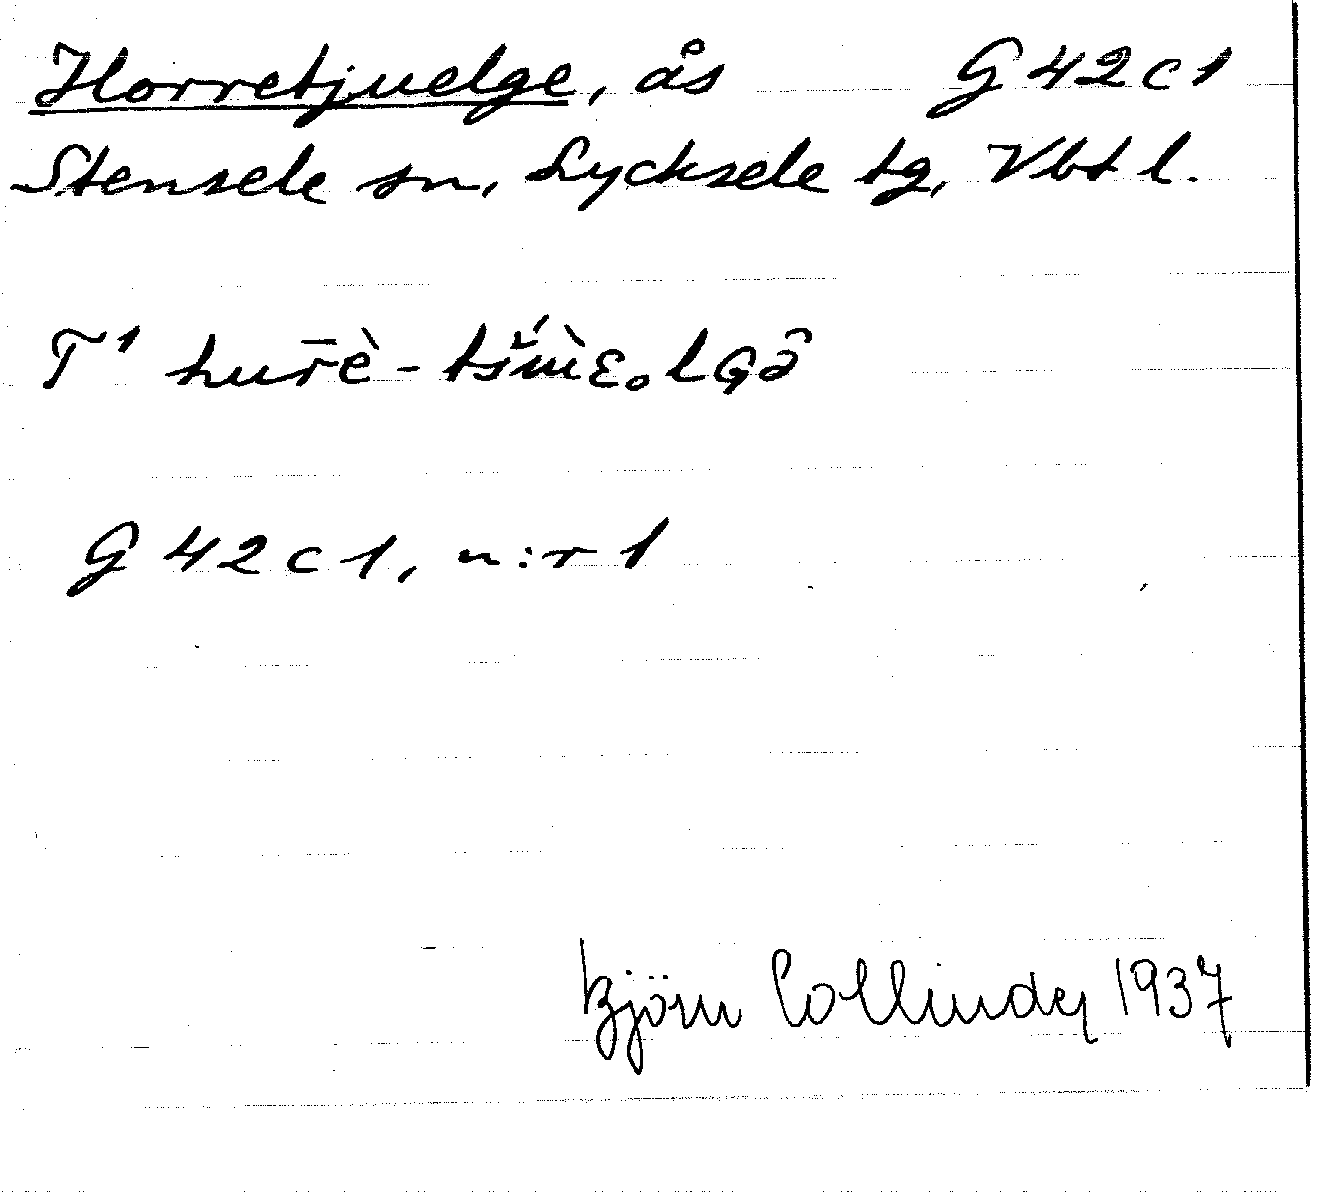 Horretjuelge, ås G 42 c 1
Stensele sn, Lycksele tg, Vbt l.
T¹ hur̄è-
G 42 c 1, n:r 1
Björn Collinder 1937